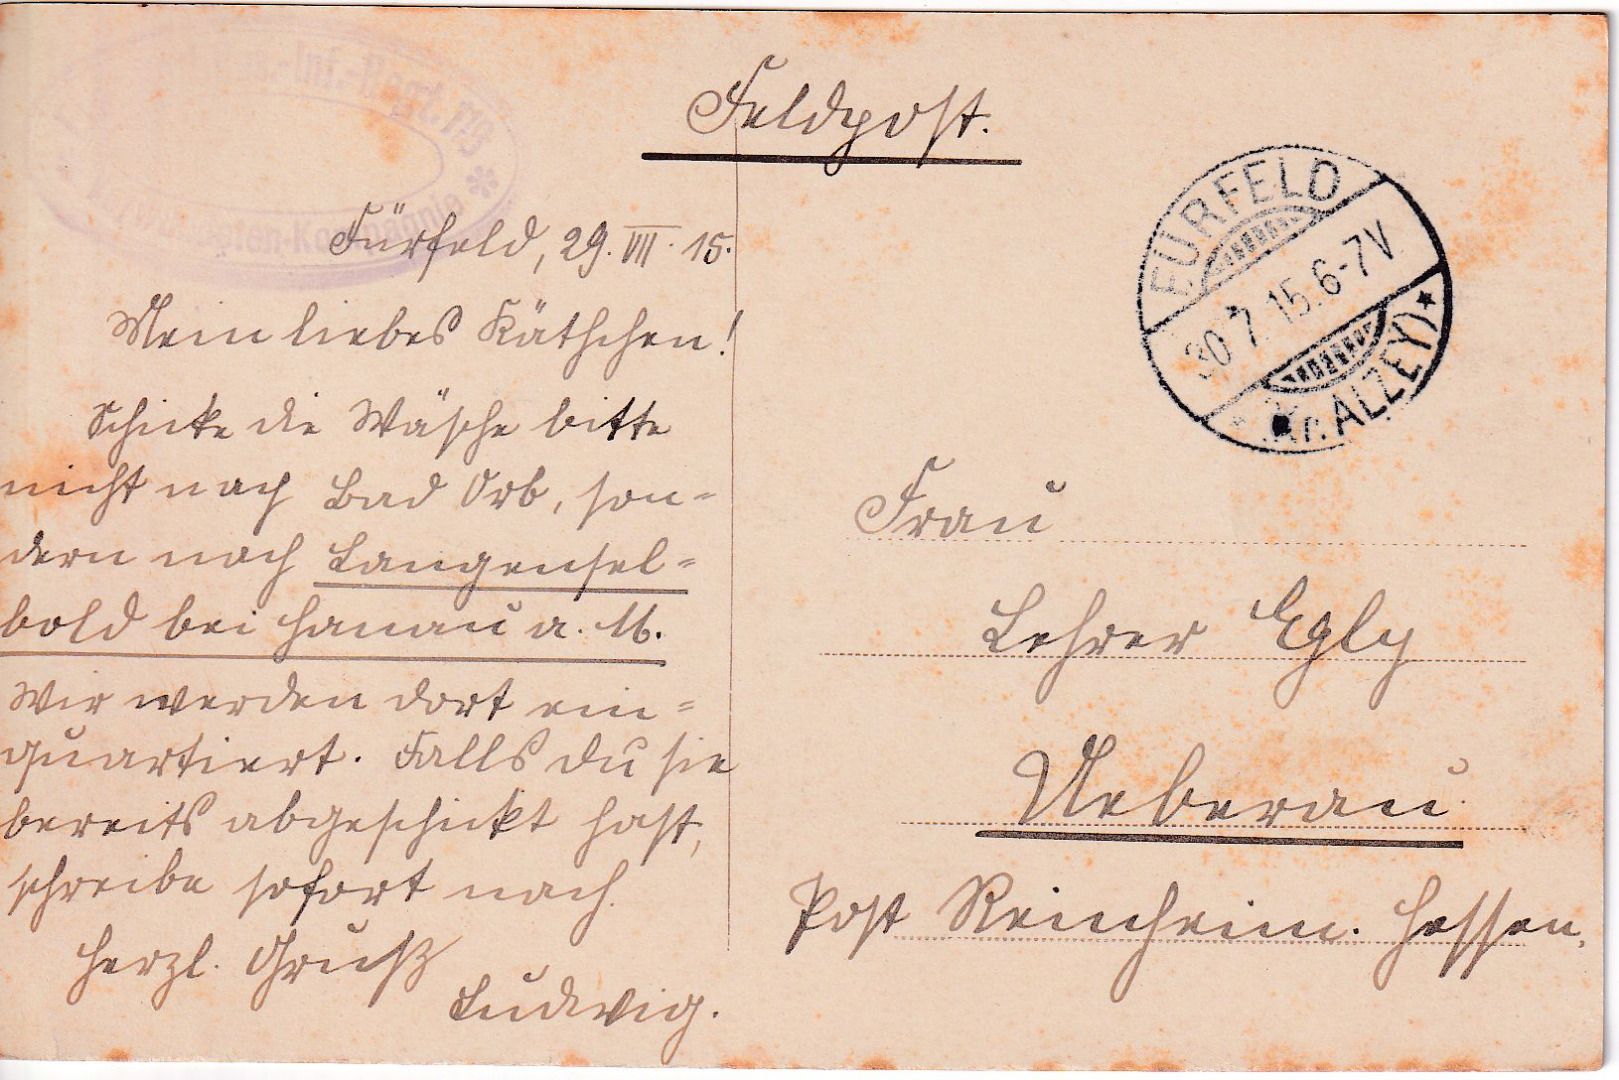 Inf.-Regt.
Feldpost.
FÜRFELD
30.7.15.6-7V.
(Kr. ALZEY)
Fürfeld, 29. VII. 15.
Mein liebes Käthchen!
Schicke die Wäsche bitte
nicht nach Bad Orb, son=
dern nach Langensel=
bold bei Hanau a. M.
Wir werden dort ein=
quartiert. Falls du sie
bereits abgeschickt hast,
schreibe sofort nach.
Herzl. Gruß
Ludwig.
Frau
Lehrer Egly
Ueberau
Post Reinheim. Hessen.